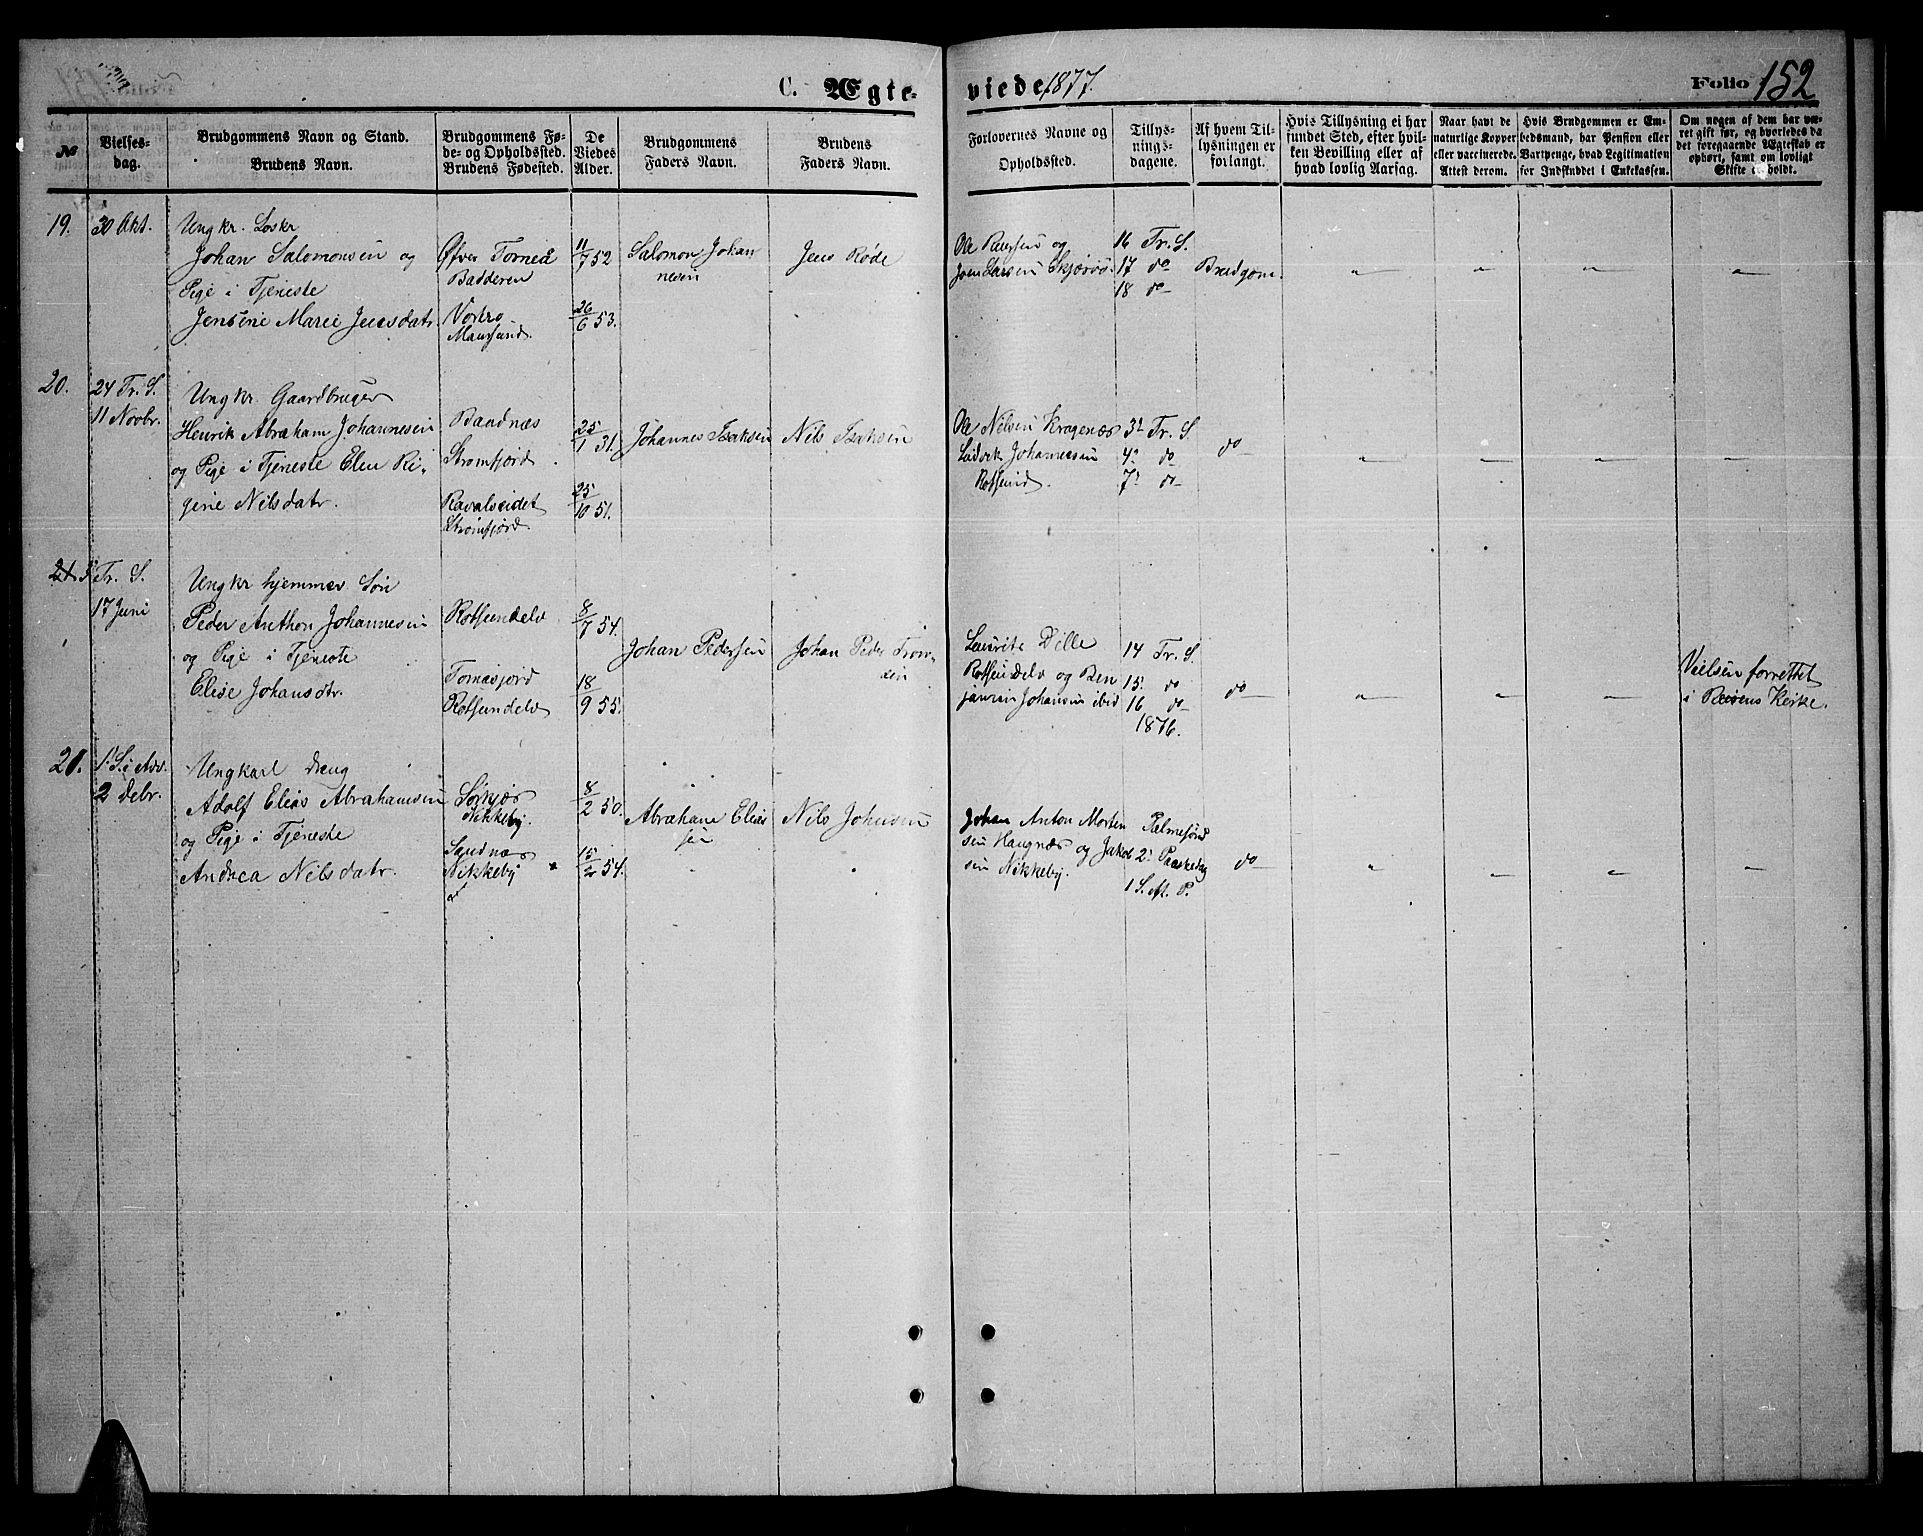 C. Ægteviede 1877.
Folio 152
№
Vielses-
dag.
Brudgommens Navn og Stand.
Brudens Navn.
Brudgommens Fø-
de- og Opholdssted.
Brudens Fødested.
De
Viedes
Alder.
Brudgommens
Faders Navn.
Brudens
Faders Navn.
Forlovernes Navne og
Opholdssted.
Tillys-
nings-
dagene.
Af hvem Til-
lysningen er
forlangt.
Hvis Tillysning ei har
fundet Sted, efter hvil-
ken Bevilling eller af
hvad lovlig Aarsag.
Naar havt de
naturlige Kopper
eller vaccinerede.
Attest derom.
Hvis Brudgommen er Em-
bedsmand, har Pension eller
Vartpenge, hvad Legitimation
for Indskuddet i Enkekassen.
Om nogen af dem har væ-
ret gift før, og hvorledes da
det foregaaende Ægteskab er
ophørt, samt om lovligt
Skifte er holdt.
19.
30 Okt.
Ungkr. Løskr
Johan Salomonsen og
Pige i Tjeneste
Jensine Marie Jensdatr.
Øfver Torneå
Badderen
Vortro
Maursund.
11/7 52
26/6 53.
Salomon Johan
nesen
Jens Røde
Ole Paulsen og
Joen Larsen Skjærvø.
16 Tr. S.
17 do
18 do
Brudgom.
20.
24 Tr. S.
11 Novbr.
Ungkr Gaardbruger
Henrik Abraham Johannesen
og Pige i Tjeneste Elen Re-
gine Nilsdatr.
Baadnæs
Strømfjord.
Ravalseidet
Strømfjord.
25/1 31.
25/10 51.
Johannes Isaksen
Nils Isaksen
Ole Nilsen Kragenæs
Ludvik Johannesen
Rotsund.
3 Tr. S.
4 do
7 do
do
21. 3 Tr. S.
17 Juni
Ungkr hjemmev Søn
Peder Anthon Johannesen
og Pige i Tjeneste
Elise Johansdtr.
Rotsundelv
Tomasjord
Rotsundelv
8/7 54.
18/9 55.
Johan Pedersen
Johan Peder Tron-
sen
Laurits Dille
Rotsundelv og Ben
jamin Johansen ibid
14 Tr. S.
15. do
16 do
1876.
do
Vielsen forrettet
i Reisens Kirke.
21.
1 S. i Adv.
2 Debr.
Ungkarl dreng
Adolf Elias Abrahamsen
og Pige i Tjeneste
Andrea Nilsdatr.
Sørkjos
Nikkeby.
Sandnæs
Nikkeby
8/2 50.
15/2 54.
Abraham Elias
sen
Nils Johnsen
Johan Anton Morten
sen Haugnæs og Jakob
sen Nikkeby.
Palmesønd
2 Paaskedag
1 S. Aft. P.
do